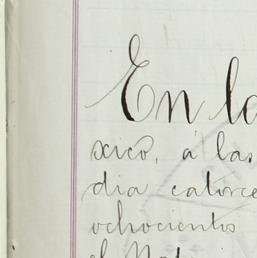 En la
xico, á las
dia catorce
ochocientos
el